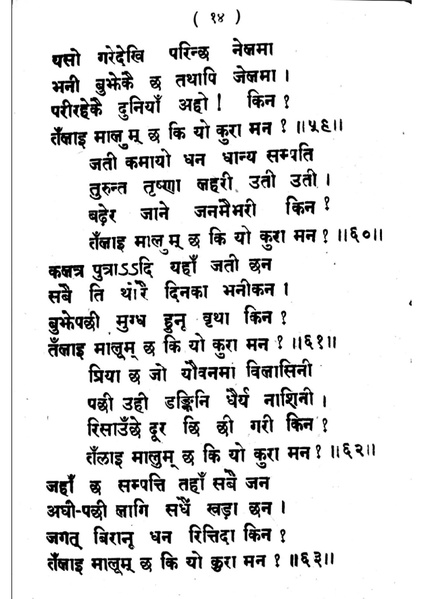 ( १४ )
यसो गरेदेखि परिन्छ नेलमा
भनी बुझेकै छ तथापि जेलमा ।
परीरहेकै दुनियाँ अहो ! किन ?
तँलाइ मालुम् छ कि यो कुरा मन ? ॥५९॥
जती कमायो धन धान्य सम्पति
तुरुन्त तृष्णा लहरी उती उती ।
बढेर जाने जनमैभरी किन ?
तँलाइ मालुम् छ कि यो कुरा मन ? ॥६०॥
कलत्र पुत्राऽऽदि यहाँ जती छन
सबै ति थोरै दिनका भनीकन ।
बुझेपछी मुग्ध हुनृ वृथा किन ?
तँलाइ मालूम् छ कि यो कुरा मन ? ॥६१॥
प्रिया छ जो यौवनमा विलासिनी
पछी उही डङ्किनि धैर्य नाशिनी ।
रिसाउँछे दूर छि छी गरी किन ?
तँलाइ मालुम् छ कि यो कुरा मन ? ॥६२॥
जहाँ छ सम्पत्ति तहाँ सबै जन
अघी-पछी लागि सधैं खडा छन ।
जगत् बिरानू धन रित्तिदा किन ?
तँलाइ मालूम् छ कि यो कुरा मन ? ॥६३॥